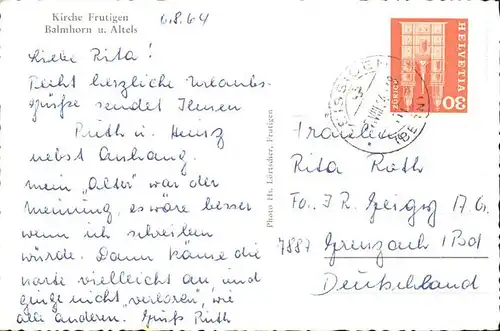 Kirche Frutigen
Balmhorn u. Altels
6.8.64
Liebe Rita!
Recht herzliche Urlaubs-
grüße sendet Ihnen
Ruth u. Heinz
nebst Anhang.
mein "Alter" war der
Meinung, es wäre besser
wenn ich schreiben
würde. Dann käme die
Karte vielleicht an, und
ginge nicht "verloren", wie
alle anderen. Gruß Ruth
Photo Hs. Lörtscher, Frutigen
HELVETIA
ZÜRICH
30
Fräulein
Rita Roth
Fa. J R Geigy
7887 Grenzach / Bd
Deutschland